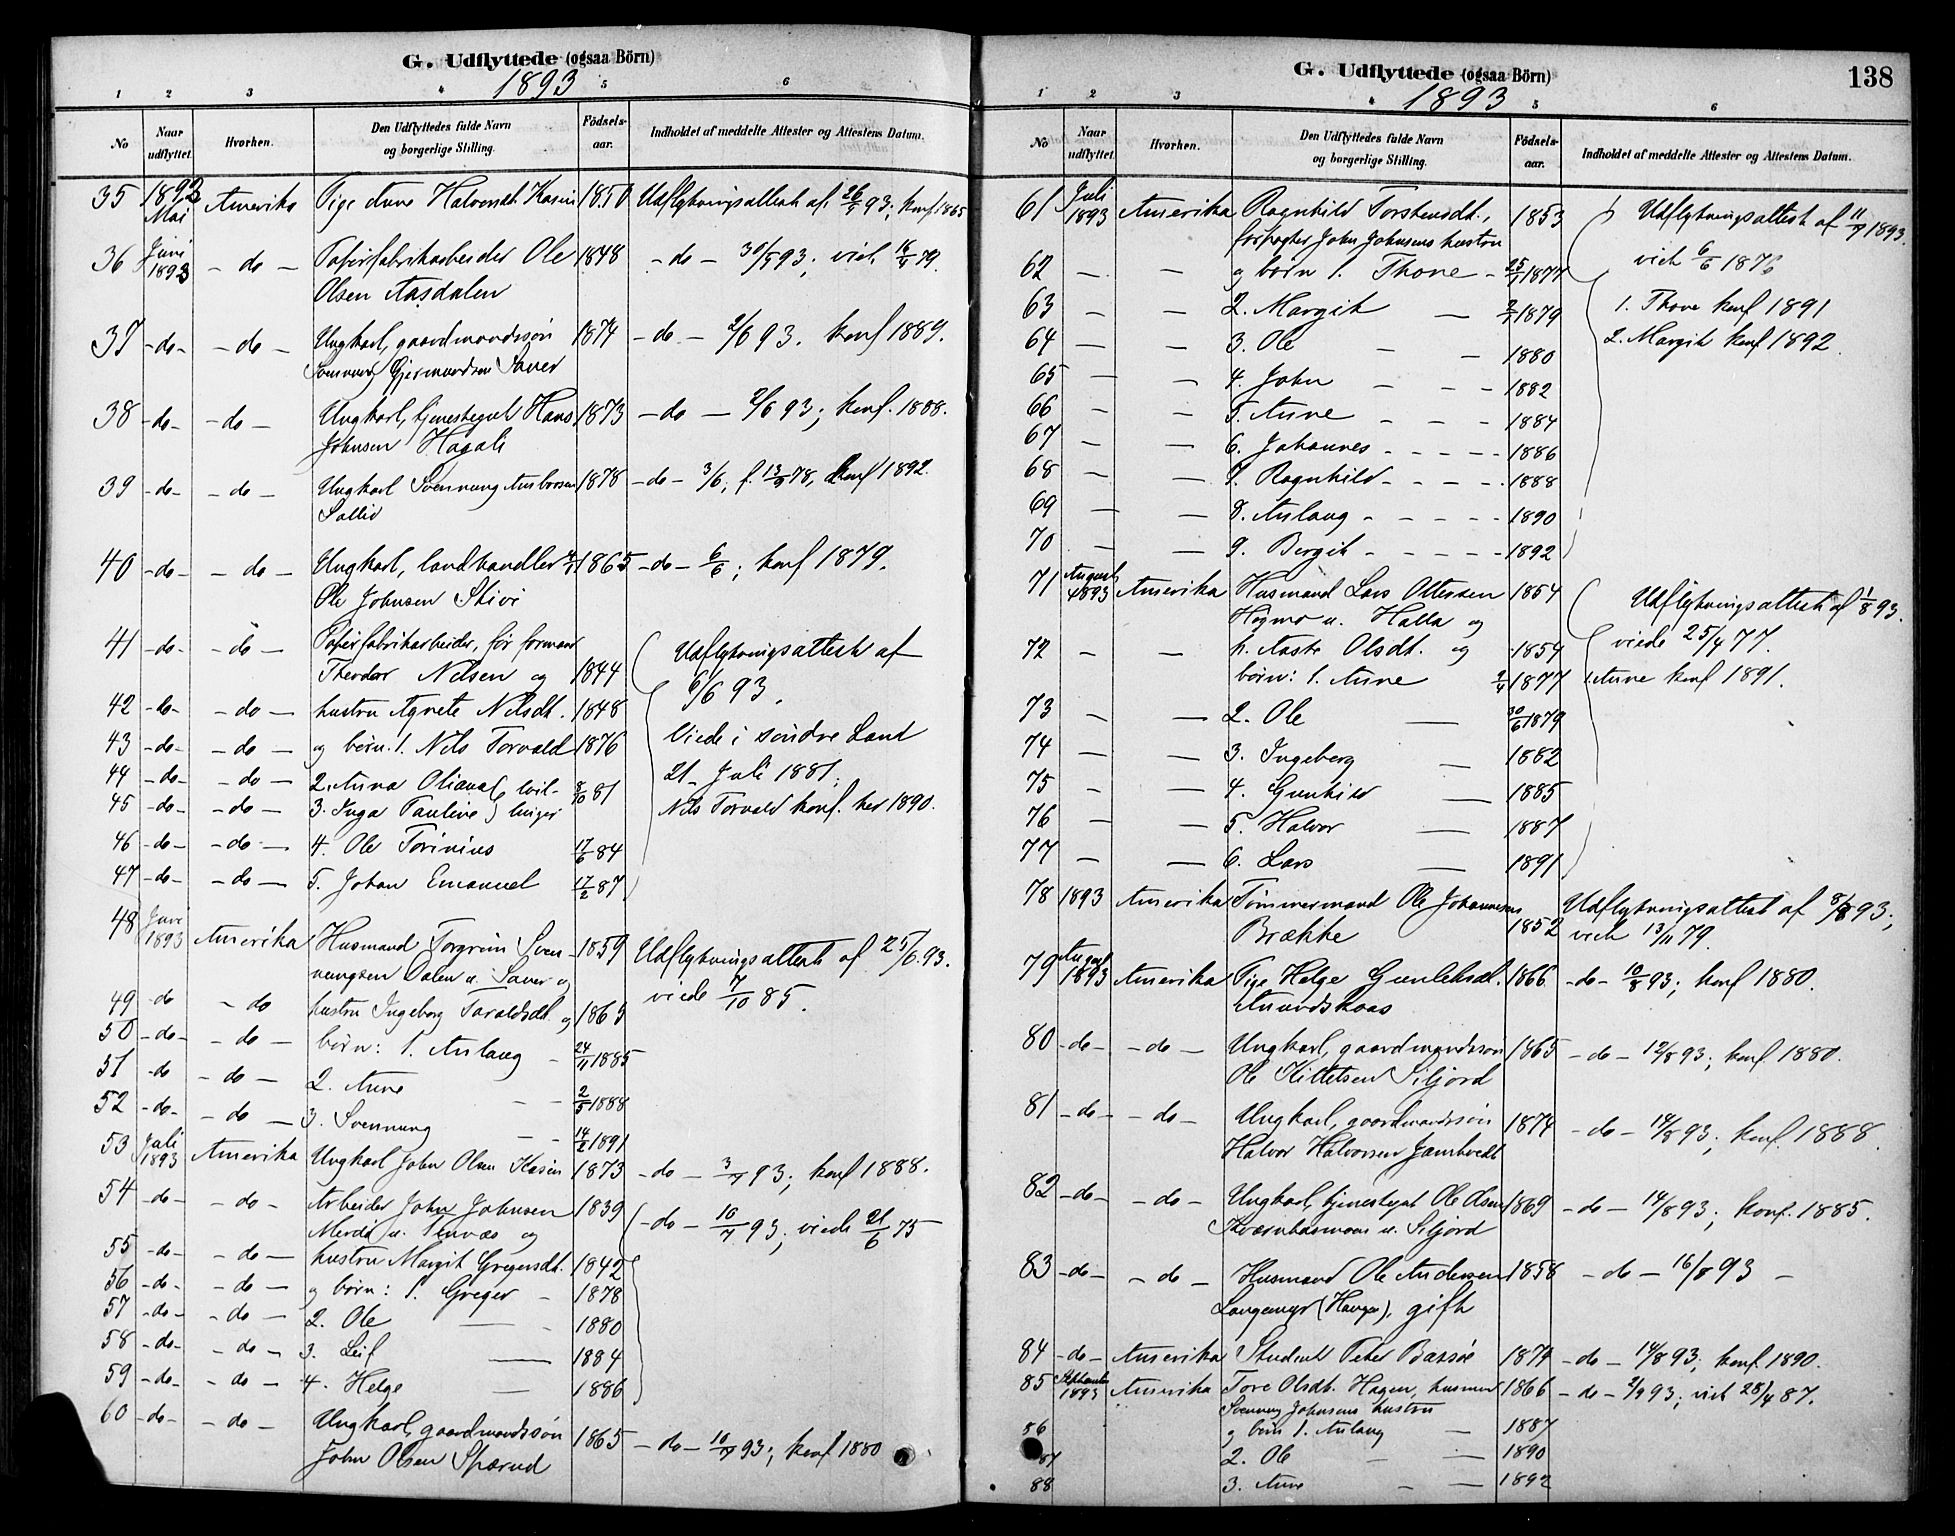 G. Udflyttede (ogsaa Börn)
1893
1 2 3 4 5 6
No
Naar udflyttet.
Hvorhen.
Den Udflyttedes fulde Navn og borgerlige Stilling.
Födsels-aar.
Indholdet af meddelte Attester og Attestens Datum.
35 1893 Mai Amerika Pige Anne Halvorsdt. Kasin 1850 Udflytningsattest af 26/5 93; konf. 1865
36 Juni 1893 - do - Papirfabrikarbeider Ole 1848 - do - 30/5 93; viet 16/4 79.
Olsen Aasdalen
37 - do - - do - Ungkarl, gaardmandssøn 1874 - do - 2/6 93. konf 1889.
Svennung Gjermundsen Saner
38 - do - - do - Ungkarl, tjenestegut Hans 1873 - do - 2/6 93; konf. 1888.
Johnsen Hagali
39 - do - - do - Ungkarl Svennung Ausbornsen 1878 - do - 3/6; f. 13/9 78, konf 1892.
40 - do - - do - Ungkarl, landhandler 1865 - do - 6/6; konf 1879.
Ole Johnsen Skivi
41 - do - - do - Papirfabrikarbeider, før formand
Theodor Nilsen og 1844 Udflytningsattest af
6/6 93.
42 - do - - do - hustru Agnete Nilsdt. 1848
43 - do - - do - og børn: 1. Nils Torvald 1876 Viede i søndre Land
44 - do - - do - 2. Anna Oliana tvil- 8/10 81 21 Juli 1881.
45 - do - - do - 3. Inga Pauline linger Nils Torvald konf. her 1890.
46 - do - - do - 4. Ole Torinius 17/6 84
47 - do - - do - 5. Johan Emanuel 17/2 87
48 Juni 1893 Amerika Husmand Torgrim Sven- 1859 Udflytningsattest af 25/6. 93.
nungsen Dalen u. Saner og viede 7/10 85.
49 - do - do hustru Ingeborg Taraldsdt. og 1865
50 - do - - do - børn: 1. Aslaug - 24/11 1885
51 - do - do - 2. Anne - - 2/5 1888
52 - do - - do - 3. Svennung - - 14/2 1891
53 Juli 1893 Amerika Ungkarl John Olsen Kasin 1873 - do - 3/7 93; konf 1888.
54 - do - - do - Arbeider John Johnsen 1839 - do - 10/7 93; viede 21/6 75
og
55 - do - - do - hustru Margit Gregersdt. 1842
56 - do - - do - og børn: 1. Greger - 1878
57 - do - - do - 2. Ole - 1880
58 - do - - do - 3. Leif - 1884
59 - do - - do - 4. Helge - 1886
60 - do - - do - Ungkarl, gaardmandssøn 1865 - do - 10/7 93; konf 1880
John Olsen Spærud
G. Udflyttede (ogsaa Börn)
138
1893
1 2 3 4 5 6
No
Naar udflyttet.
Hvorhen.
Den Udflyttedes fulde Navn og borgerlige Stilling.
Födsels-aar.
Indholdet af meddelte Attester og Attestens Datum.
61 Juli 1893 Amerika Ragnhild Torstensdt., 1853 Udflytningsattest af 11/7 1893.
forpagter John Johnsens hustru viet 6/6 1876
62 - - og børn 1. Thone - 25/7 1877
63 - - 2. Margit - 1879 1. Thone konf 1891
64 - - 3. Ole - - 1880 2. Margit konf 1892.
65 - - 4. John - - - 1882
66 - - 5. Anne - - - 1884
67 - - 6. Johannes - - - - 1886
68 - - 7. Ragnhild - - - - 1888
69 - - 8. Aslaug - - - - 1890
70 - - 9. Bergit - - - - - 1892
71 August 1893 Amerika Husmand Lars Ottersen 1854 Udflytningsattest af 1/8 93.
Høgmo u. Halla og viede 25/4 77.
72 - - h. Aaste Olsdt. og 1854
børn: 1. Anne 2/4 1877 1. Anne konf 1891.
73 - - 2. Ole - 30/6 1879
74 - 3. Ingeborg - 1882
75 - 4. Gunhild - 1885
76 - - 5. Halvor - 1887
77 - - 6. Lars - 1891
78 1893 Amerika Tømmermand Ole Johannesen Udflytningsattest af 8/8 93;
Brække 1852 viet 13/11 79.
79 August 1893 Amerika Pige Helge Gunleksdt. 1866 - do - 10/8 93; konf 1880.
Amundskaas
80 - do - - do - Ungkarl, gaardmandssøn 1865 - do - 12/8 93; konf 1880.
Ole Kittelsen Siljord
81 - do - - do - Ungkarl, gaardmandssøn 1874 - do - 14/8 93; konf 1888.
Halvor Halvorsen Jamtvedt
82 - do - - do - Ungkarl, tjenestegut Ole Olsen 1869 - do - 14/8 93; konf. 1885.
Kværnhusmoen u. Siljord
83 - do - - do - Husmand Ole Andersen 1858 - do - 16/8 93 -
Langemyr (Haugen), gift
84 - do - Amerika Student Peter Bassøe 1874 - do - 14/8 93; konf. 1890.
85 September 1893 Amerika Tore Olsdt. Hagen, husmd 1866 - do - 2/9 93; viet 28/4 87.
Svennung Johnsens hustru
86 og børn 1. Aslaug - 1887
87 2. Ole - - 1890
88 3. Anne - - 1892